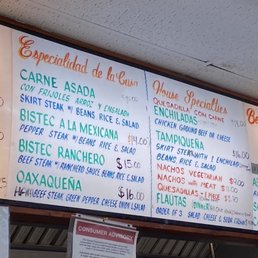 Especialidad de la Casa
CARNE ASADA
CON FRIJOLES ARROZ Y ENSALADA
SKIRT STEAK W/ BEANS RICE & SALAD
BISTEC A LA MEXICANA
PEPPER STEAK W/ BEANS, RICE & SALAD
BISTEC RANCHERO $15.00
BEEF STEAK W/ RANCHERO SAUCE BEANS RICE & SALAD
OAXAQUEÑA $16.00
BEEF STEAK GREEN PEPPER CHEESE ONION & SALAD
House Specialties
QUESADILLA CON CARNE
ENCHILADAS
CHICKEN GROUND BEEF OR CHEESE
TAMPIQUEÑA
SKIRT STEAK WITH 1 ENCHILADA
BEANS RICE & SALAD
NACHOS VEGETARIAN
NACHOS WITH MEAT
QUESADILLAS
FLAUTAS
ORDER OF 3 SALAD CHEESE & SOUR CREAM
CONSUMER ADVISORY